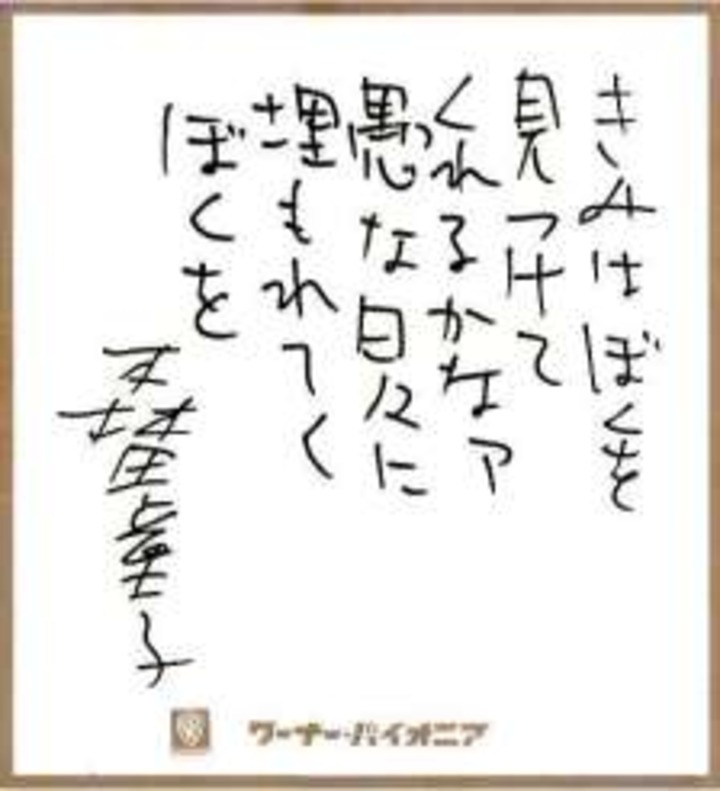 きみはぼくを
見つけて
くれるかなァ
愚な日々に
埋もれてく
ぼくを
森田童子
ワーナー・パイオニア